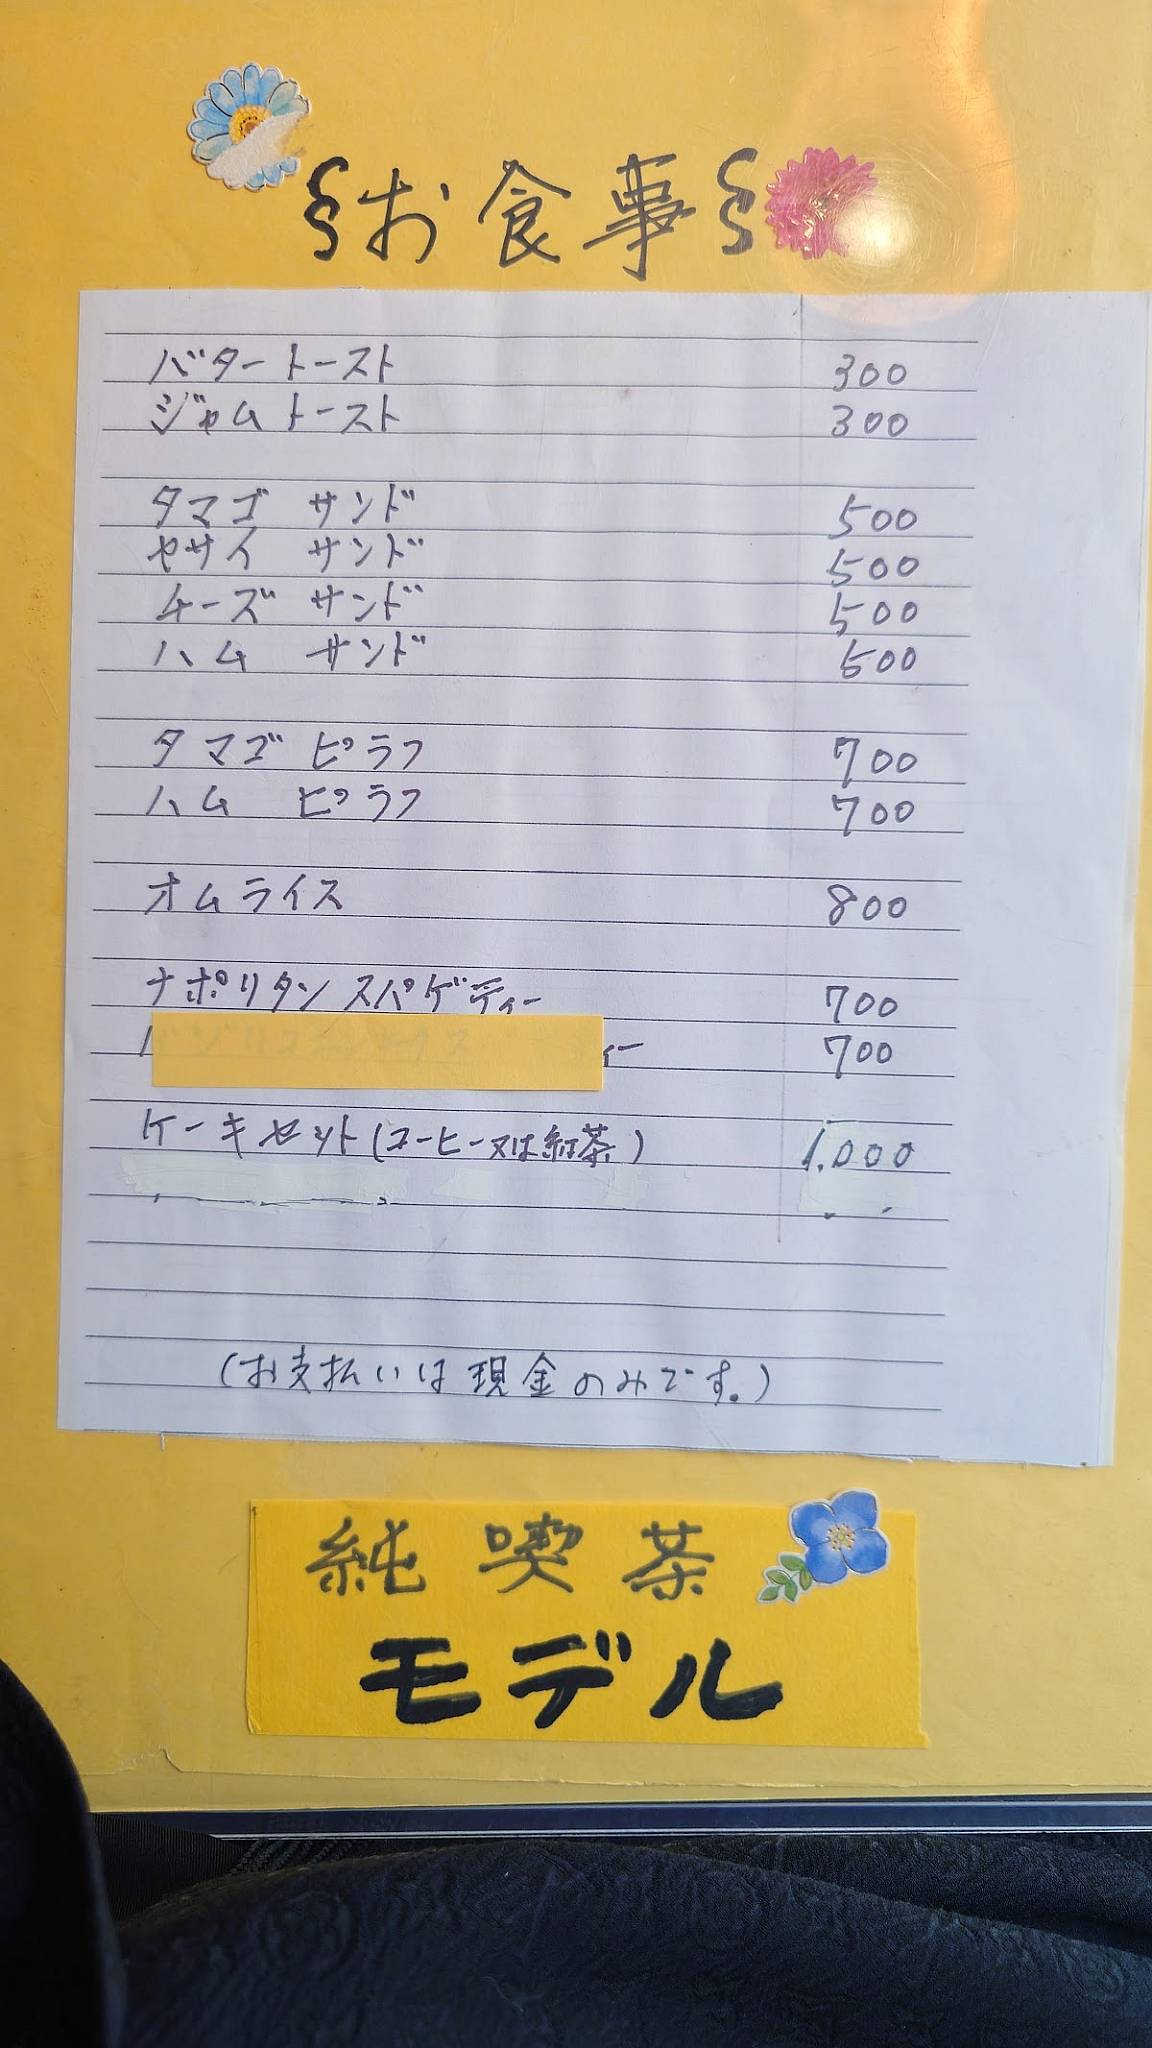 お食事
バタートースト 300
ジャムトースト 300
タマゴ サンド 500
ヤサイ サンド 500
チーズ サンド 500
ハム サンド 500
タマゴ ピラフ 700
ハム ピラフ 700
オムライス 800
ナポリタン スパゲティー 700
ィー 700
ケーキセット(コーヒー又は紅茶) 1.000
(お支払いは現金のみです。)
純喫茶
モデル